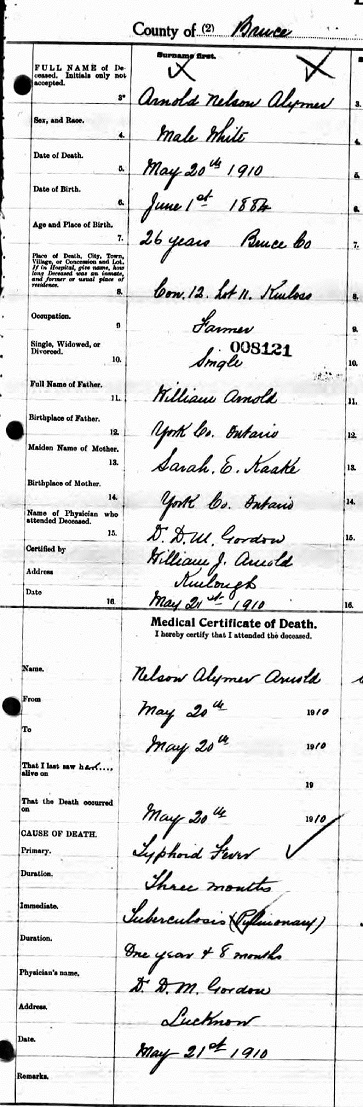 County of (2) Bruce
Surname first.
FULL NAME of De-
ceased. Initials only not
accepted.
3. Arnold Nelson Alymer 3.
Sex, and Race.
4. Male White 4.
Date of Death.
5. May 20th 1910 5.
Date of Birth.
6. June 1st 1884 6.
Age and Place of Birth.
7. 26 years Bruce Co 7.
Place of Death, City, Town,
Village, or Concession and Lot.
If in Hospital, give name, how
long Deceased was an inmate,
and former or usual place of
residence.
8. Con. 12. Lot 11. Kinloss 8.
Occupation.
9 Farmer 9.
Single, Widowed, or
Divorced.
008121
10. Single 10.
Full Name of Father.
11. William Arnold 11.
Birthplace of Father.
12. York Co. Ontario 12.
Maiden Name of Mother.
13. Sarah. E. Kaake 13.
Birthplace of Mother.
14. York Co. Ontario 14.
Name of Physician who
attended Deceased.
15. D. D. M. Gordon 15.
Certified by William J. Arnold
Address Kinlough
Date
16. May 21st 1910 16.
Medical Certificate of Death.
I hereby certify that I attended the deceased.
Name. Nelson Alymer Arnold
From May 20th 1910
To May 20th 1910
That I last saw h
alive on 19
That the Death occurred
on May 20th 1910
CAUSE OF DEATH.
Primary. Typhoid Fever
Duration. Three months
Immediate. Tuberculosis (Pulmonary)
Duration. One year & 8 months
Physician's name. D. D. M. Gordon
Address. Lucknow
Date. May 21st 1910
Remarks.